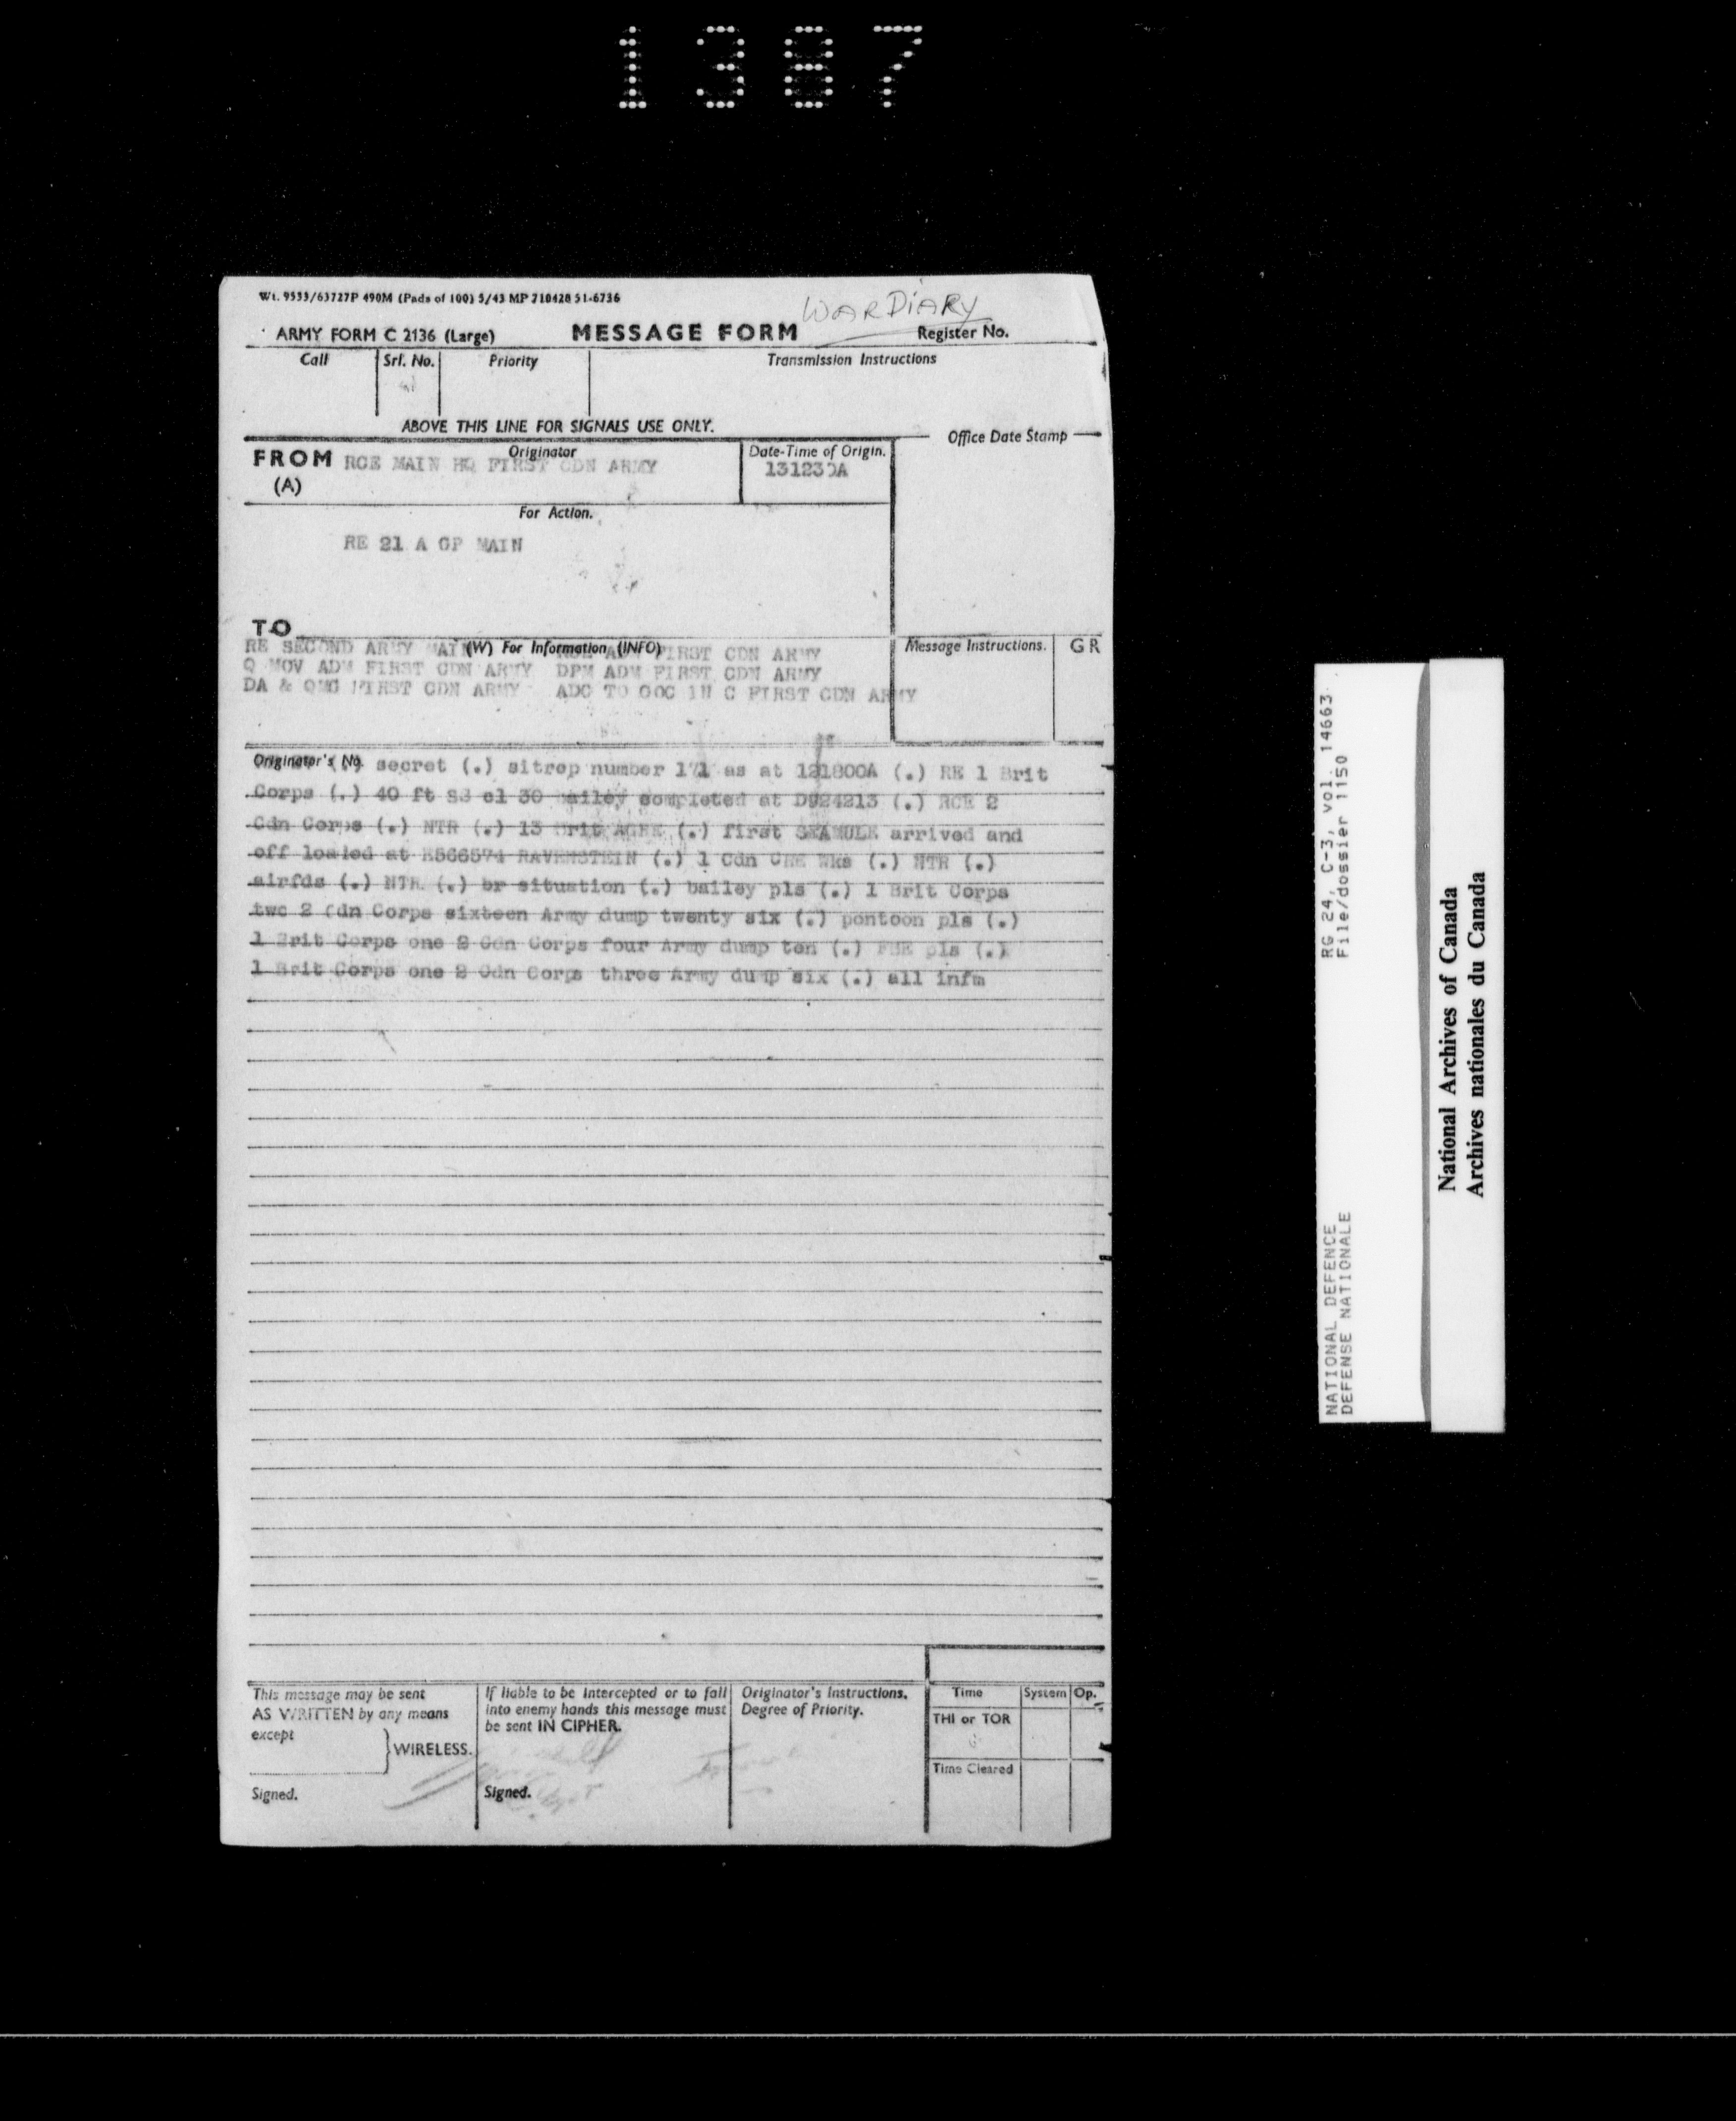 1387
Wt. 9533/63727P 490M (Pads of 100) 5/43 MP 710428 51-6736
WAR DIARY
ARMY FORM C 2136 (Large) MESSAGE FORM Register No.
Call Srl. No. Priority Transmission Instructions
ABOVE THIS LINE FOR SIGNALS USE ONLY.
Office Date Stamp
FROM Originator Date-Time of Origin.
(A) RCE MAIN HQ FIRST CDN ARMY 131230A
For Action.
RE 21 A GP MAIN
TO
(W) For Information (INFO) Message Instructions. G R
RE SECOND ARMY MAIN FIRST CDN ARMY
Q MOV ADM FIRST CDN ARMY DPM ADM FIRST CDN ARMY
DA & QMG FIRST CDN ARMY ADC TO GOC IN C FIRST CDN ARMY
Originator's No.
(.) secret (.) sitrep number 171 as at 121800A (.) RE 1 Brit
Corps (.) 40 ft SS cl 30 bailey completed at D924213 (.) RCE 2
Cdn Corps (.) NTR (.) 13 Brit AGRE (.) first SEAMULE arrived and
off loaded at E566574 RAVENSTEIN (.) 1 Cdn CRE Wks (.) NTR (.)
airfds (.) NTR (.) br situation (.) bailey pls (.) 1 Brit Corps
two 2 Cdn Corps sixteen Army dump twenty six (.) pontoon pls (.)
1 Brit Corps one 2 Cdn Corps four Army dump ten (.) FBE pls (.)
1 Brit Corps one 2 Cdn Corps three Army dump six (.) all infm
This message may be sent
AS WRITTEN by any means
except
WIRELESS.
Signed.
If liable to be intercepted or to fall
into enemy hands this message must
be sent IN CIPHER.
Signed.
Originator's Instructions.
Degree of Priority.
Time System Op.
THI or TOR
Time Cleared
NATIONAL DEFENCE RG 24, C-3, vol. 14663
DEFENSE NATIONALE File/dossier 1150
National Archives of Canada
Archives nationales du Canada